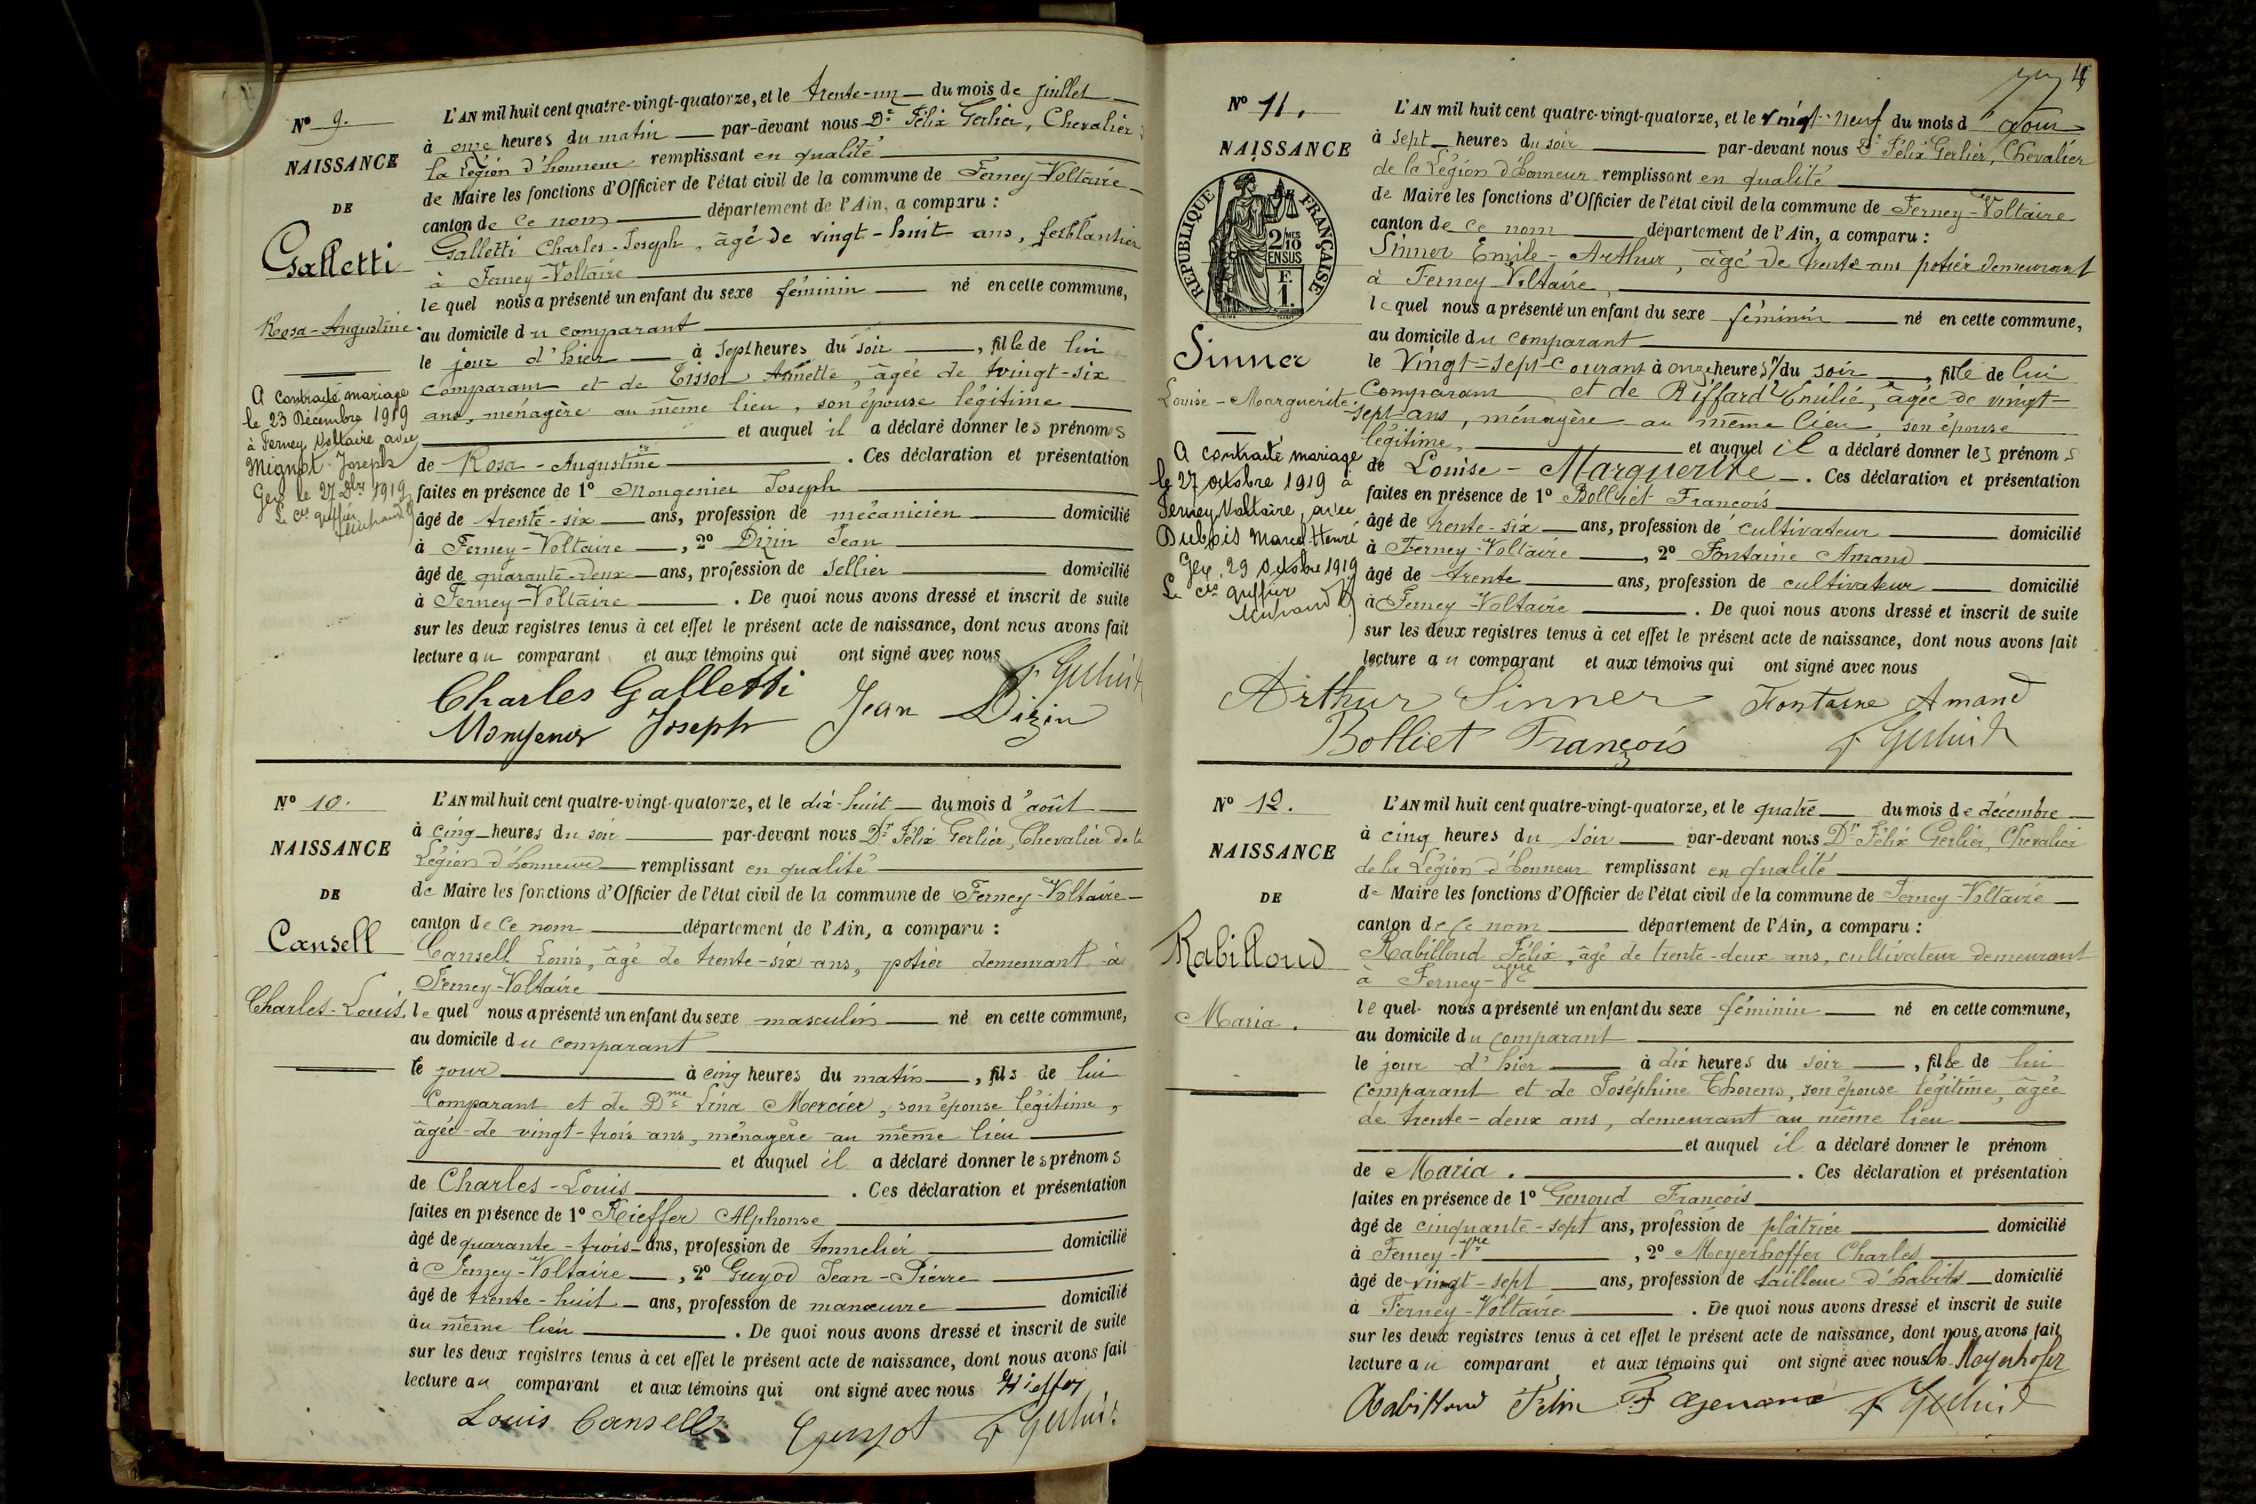 Nº 9.
NAISSANCE
DE
Galletti
Rosa-Augustine
A contracté mariage
le 23 Décembre 1919
à Ferney Voltaire avec
Mignot Joseph
Gex le 27 Dbre 1919
Le cis greffier
L'AN mil huit cent quatre-vingt-quatorze, et le trente-un du mois de juillet
à onze heures du matin par-devant nous Dr Félix Gerlier, Chevalier
la Légion d'honneur remplissant en qualité
de Maire les fonctions d'Officier de l'état civil de la commune de Ferney-Voltaire
canton de ce nom département de l'Ain, a comparu :
Galletti Charles-Joseph, âgé de vingt-huit ans, ferblantier
à Ferney-Voltaire
lequel nous a présenté un enfant du sexe féminin né en cette commune,
au domicile du comparant
le jour d'hier à sept heures du soir, fille de lui
comparant et de Tissot Annette, âgée de vingt-six
ans, ménagère au même lieu, son épouse légitime
et auquel il a déclaré donner les prénoms
de Rosa-Augustine. Ces déclaration et présentation
faites en présence de 1º Mongenier Joseph
âgé de trente-six ans, profession de mécanicien domicilié
à Ferney-Voltaire, 2º Dizin Jean
âgé de quarante-deux ans, profession de sellier domicilié
à Ferney-Voltaire. De quoi nous avons dressé et inscrit de suite
sur les deux registres tenus à cet effet le présent acte de naissance, dont nous avons fait
lecture au comparant et aux témoins qui ont signé avec nous
F. Gerlier
Charles Galletti
Jean Dizin
Mongenier Joseph
Nº 10.
NAISSANCE
DE
Cansell
Charles-Louis.
L'AN mil huit cent quatre-vingt-quatorze, et le dix-huit du mois d'août
à cinq heures du soir par-devant nous Dr Félix Gerlier, Chevalier de la
Légion d'honneur remplissant en qualité
de Maire les fonctions d'Officier de l'état civil de la commune de Ferney-Voltaire
canton de ce nom département de l'Ain, a comparu :
Cansell Louis, âgé de trente-six ans, potier demeurant à
Ferney-Voltaire
lequel nous a présenté un enfant du sexe masculin né en cette commune,
au domicile du comparant
le jour à cinq heures du matin, fils de lui
comparant et de Dme Lina Mercier, son épouse légitime,
âgée de vingt-trois ans, ménagère au même lieu
et auquel il a déclaré donner les prénoms
de Charles-Louis. Ces déclaration et présentation
faites en présence de 1º Kieffer Alphonse
âgé de quarante-trois ans, profession de tonnelier domicilié
à Ferney-Voltaire, 2º Guyod Jean-Pierre
âgé de trente-huit ans, profession de manœuvre domicilié
au même lieu. De quoi nous avons dressé et inscrit de suite
sur les deux registres tenus à cet effet le présent acte de naissance, dont nous avons fait
lecture au comparant et aux témoins qui ont signé avec nous Kieffer
Louis Cansell Guyot F. Gerlier
4
Nº 11.
NAISSANCE
DE
RÉPUBLIQUE FRANÇAISE
2/10 MES
EN SUS
F.
1.
Sinner
Louise-Marguerite.
A contracté mariage
le 27 octobre 1919 à
Ferney Voltaire, avec
Dubois Marcel Henri
Gex, 29 octobre 1919
Le cis greffier
L'AN mil huit cent quatre-vingt-quatorze, et le vingt-neuf du mois d'Août
à sept heures du soir par-devant nous Dr Félix Gerlier, Chevalier
de la Légion d'honneur remplissant en qualité
de Maire les fonctions d'Officier de l'état civil de la commune de Ferney-Voltaire
canton de ce nom département de l'Ain, a comparu :
Sinner Emile-Arthur, âgé de trente ans potier demeurant
à Ferney Voltaire,
lequel nous a présenté un enfant du sexe féminin né en cette commune,
au domicile du comparant
le vingt-sept courant à onze heures 1/2 du soir, fille de lui
comparant et de Riffard Emilie, âgée de vingt-
sept ans, ménagère au même lieu, son épouse
légitime, et auquel il a déclaré donner les prénoms
de Louise-Marguerite. Ces déclaration et présentation
faites en présence de 1º Bolliet François
âgé de trente-six ans, profession de cultivateur domicilié
à Ferney-Voltaire, 2º Fontaine Amand
âgé de trente ans, profession de cultivateur domicilié
à Ferney-Voltaire. De quoi nous avons dressé et inscrit de suite
sur les deux registres tenus à cet effet le présent acte de naissance, dont nous avons fait
lecture au comparant et aux témoins qui ont signé avec nous
Arthur Sinner Fontaine Amand
Bolliet François F. Gerlier
Nº 12.
NAISSANCE
DE
Rabilloud
Maria.
L'AN mil huit cent quatre-vingt-quatorze, et le quatre du mois de décembre
à cinq heures du soir par-devant nous Dr Félix Gerlier, Chevalier
de la Légion d'honneur remplissant en qualité
de Maire les fonctions d'Officier de l'état civil de la commune de Ferney-Voltaire
canton de ce nom département de l'Ain, a comparu :
Rabilloud Félix, âgé de trente-deux ans, cultivateur demeurant
à Ferney-Vre
lequel nous a présenté un enfant du sexe féminin né en cette commune,
au domicile du comparant
le jour d'hier à dix heures du soir, fille de lui
comparant et de Joséphine Thorens, son épouse légitime, âgée
de trente-deux ans, demeurant au même lieu
et auquel il a déclaré donner le prénom
de Maria. Ces déclaration et présentation
faites en présence de 1º Genoud François
âgé de cinquante-sept ans, profession de plâtrier domicilié
à Ferney-Vre, 2º Meyerhoffer Charles
âgé de vingt-sept ans, profession de tailleur d'habits domicilié
à Ferney-Voltaire. De quoi nous avons dressé et inscrit de suite
sur les deux registres tenus à cet effet le présent acte de naissance, dont nous avons fait
lecture au comparant et aux témoins qui ont signé avec nous Ch. Meyerhofer
Rabilloud Félix F Genoud F. Gerlier